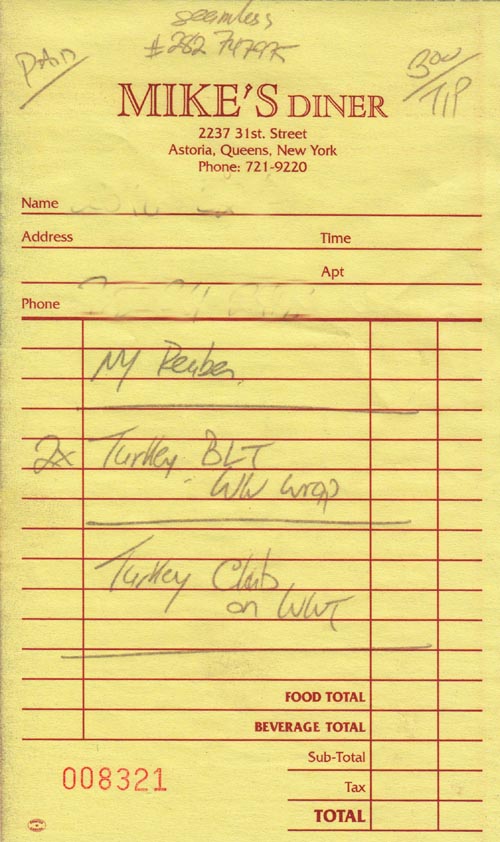 seamless
PAID
TIP
MIKE'S DINER
2237 31st. Street
Astoria, Queens, New York
Phone: 721-9220
Name
Address Time
Apt
Phone
NY Reuben
2x Turkey BLT
WW wrap
Turkey Club
on WWT
FOOD TOTAL
BEVERAGE TOTAL
Sub-Total
008321
Tax
TOTAL